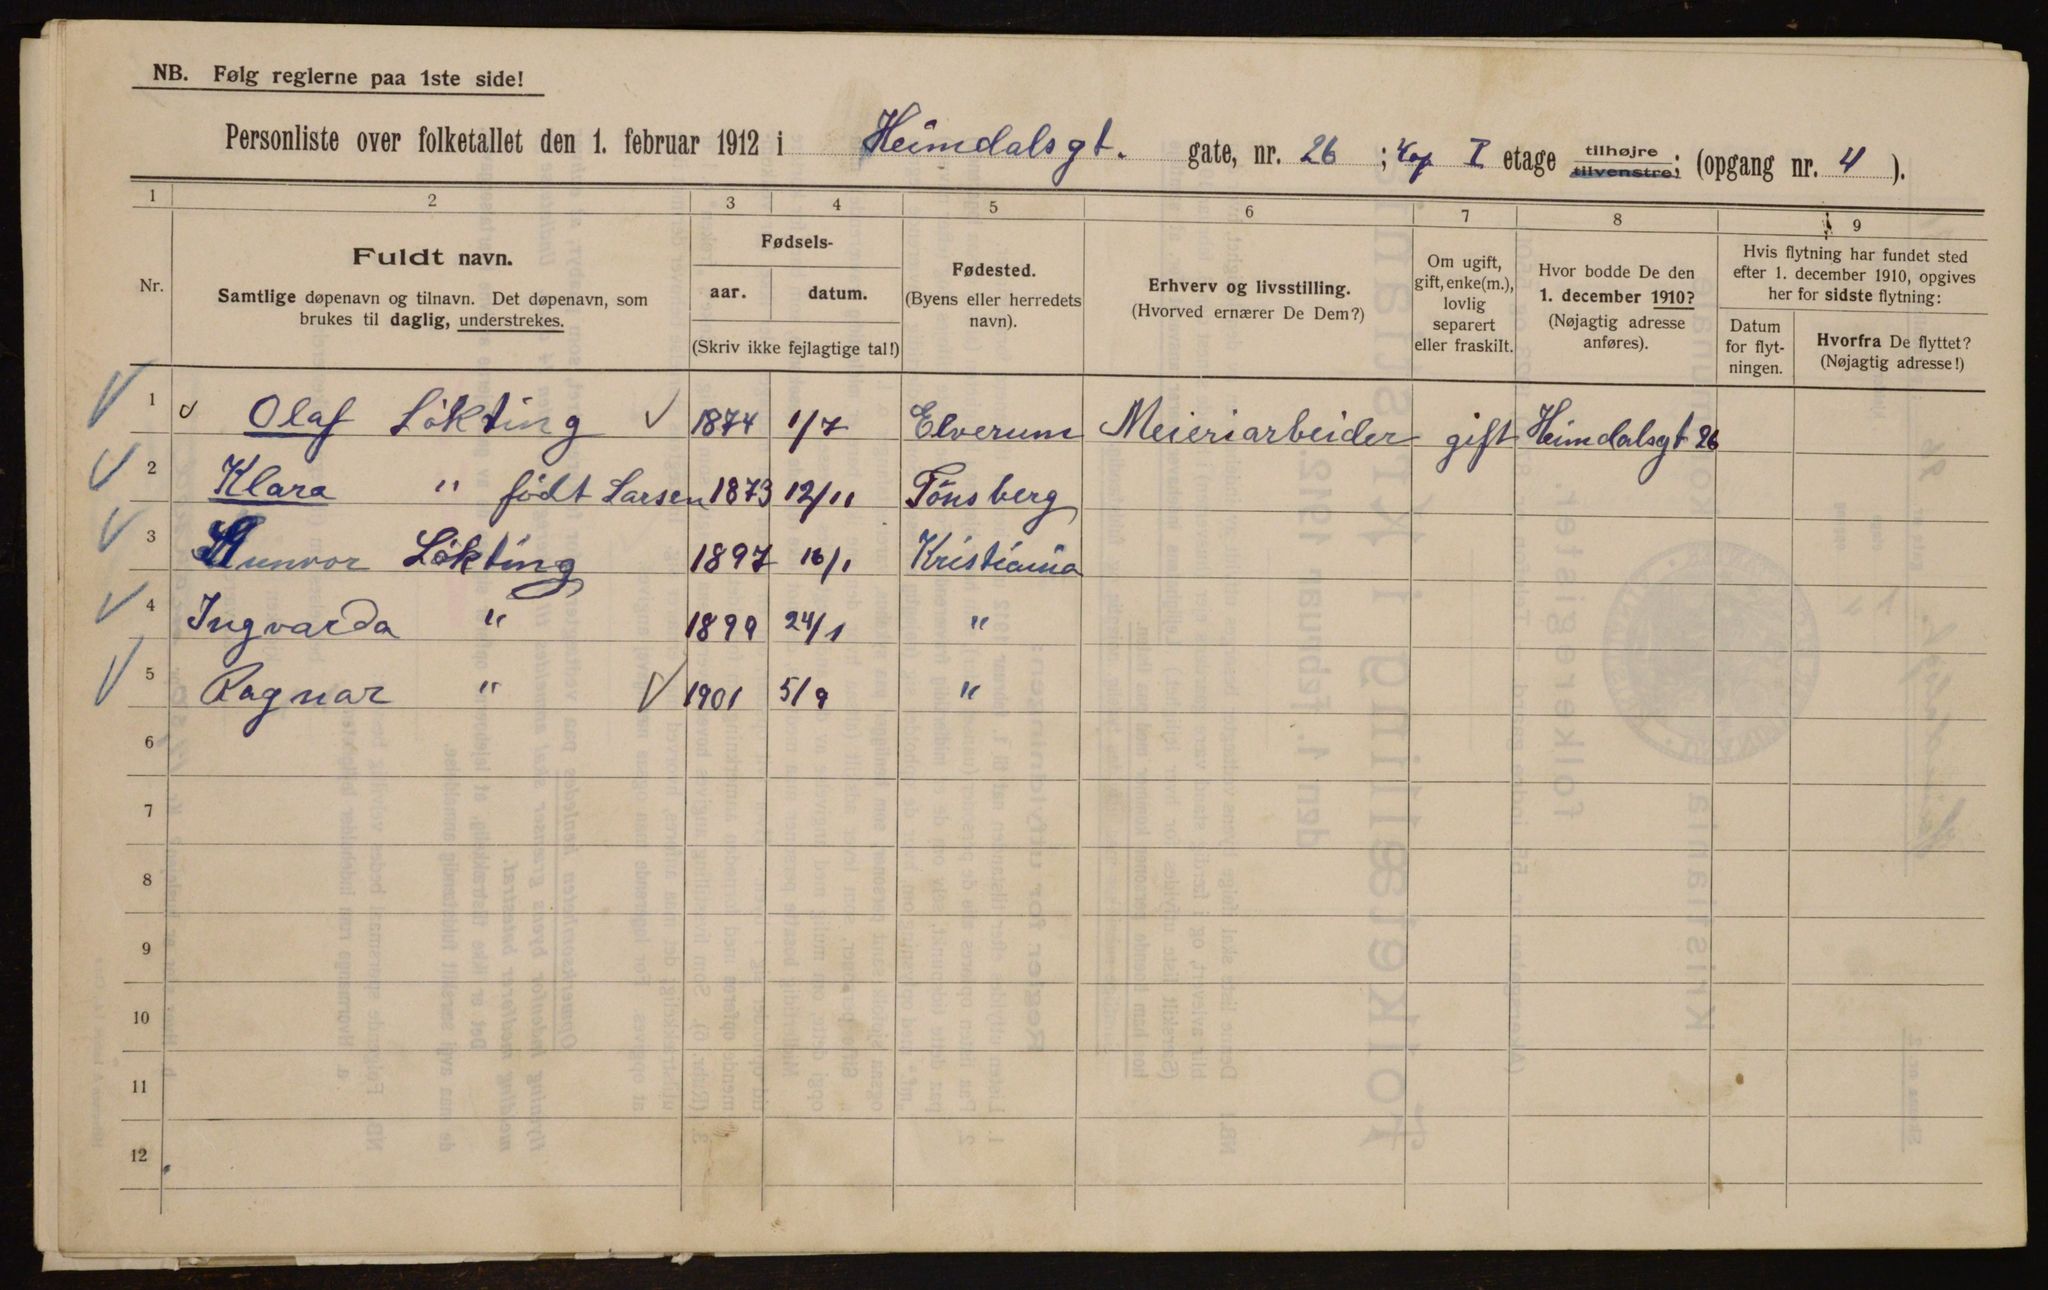 NB. Følg reglerne paa 1ste side!
Personliste over folketallet den 1. februar 1912 i Heimdalsgt. gate, nr. 26 ; I etage tilhøjre tilvenstre; (opgang nr. 4 ).
1 2 3 4 5 6 7 8 9
Nr.
Fuldt navn.
Samtlige døpenavn og tilnavn. Det døpenavn, som
brukes til daglig, understrekes.
Fødsels-
aar. datum.
(Skriv ikke fejlagtige tal!)
Fødested.
(Byens eller herredets
navn).
Erhverv og livsstilling.
(Hvorved ernærer De Dem?)
Om ugift,
gift, enke(m.),
lovlig
separert
eller fraskilt.
Hvor bodde De den
1. december 1910?
(Nøjagtig adresse
anføres).
Hvis flytning har fundet sted
efter 1. december 1910, opgives
her for sidste flytning:
Datum
for flyt-
ningen.
Hvorfra De flyttet?
(Nøjagtig adresse!)
1 Olaf Lökting 1874 1/7 Elverum Meieriarbeider gift Heimdalsgt 26
2 Klara " födt Larsen 1873 12/11 Tönsberg
3 Gunvor Lökting 1897 16/1 Kristiania
4 Ingvarda " 1899 24/1 "
5 Ragnar " 1901 5/9 "
6
7
8
9
10
11
12